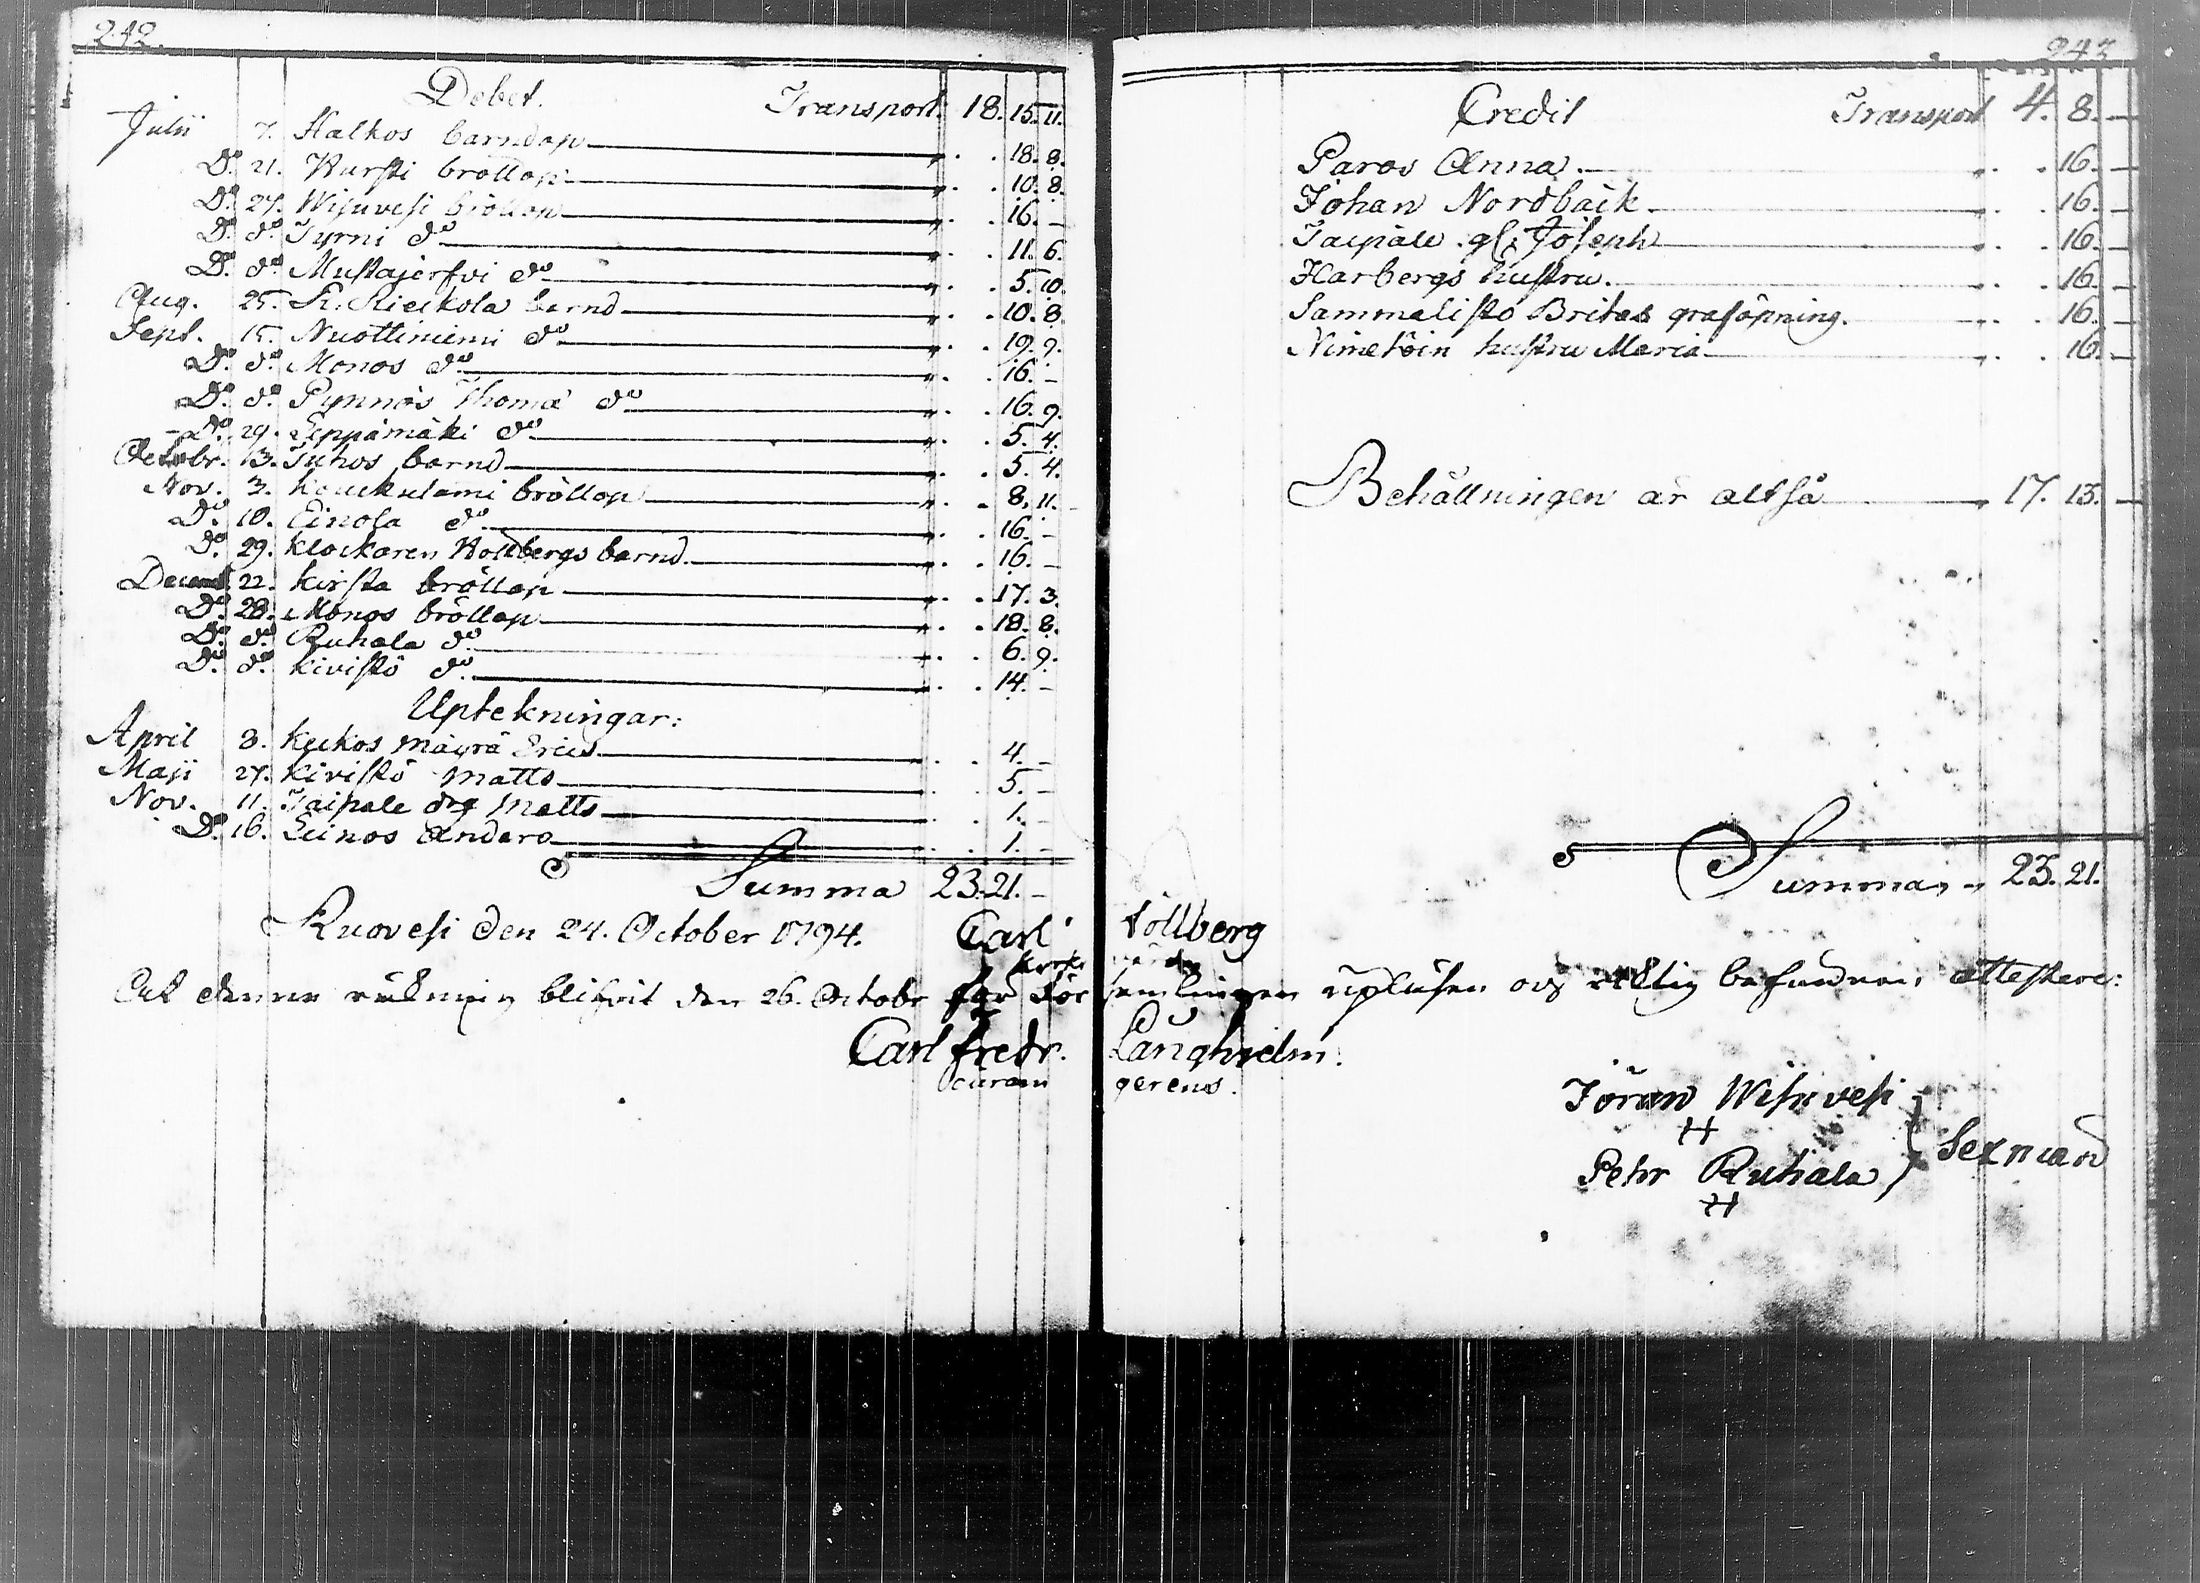 242.
Debet. Transport. 18. 15. 11.
Julii 7. Halkos barndop 18. 8.
Do. 21. Kursti bröllop 10. 8.
Do. 27. Wisuvesi bröllop 16. –
Do. do. Tyrni do 11. 6.
Do. do. Mustajerfvi do 5. 10.
Aug. 25. Kieckola barnd 10. 8.
Sept. 15. Nuottiniemi do 19. 9.
Do. do. Monos do 16. –
Do. do. Pynnös Thoma do 16. 9.
Do. 29. Leppämäki do 5. 4.
Octobr. 13. Juhos barnd 5. 4.
Nov. 3. bröllop 8. 11.
Do. 10. Einola do 16. –
Do. 29. Klockaren barnd. 16. –
Decemb. 22. Kirsta bröllop 17. 3.
Do. 28. Monos bröllop 18. 8.
Do. do. Ruhala do 6. 9.
Do. do. Kivistö do 14. –
Uptekningar:
April 8. Kukos Mäyrä Erics 4. –
Maji 27. Kivistö Matts 5. –
Nov. 11. Taipale Matts 1. –
Do. 16. Leinos Anders 1. –
Summa 23. 21. –
243
Credit Transport 4. 8. –
Paros Anna. 16. –
Johan Nordbäck 16. –
Taipale gl. Joseph 16. –
Harbergs hustru. 16. –
Sammalistö Britas graföpning. 16. –
Nimetöin hustru Maria 16. –
Behållningen är altså 17. 13. –
Summa 23. 21.
Ruovesi den 24. October 1794. Carl Tollberg
kyrko värde
At denna räkning blifvit den 26. Octobr för församlingen upläsen och riktig befunden, attesterar:
Carl Fredr. Långhielm.
curam gerens.
Jöran Wisuvesi
Pehr Ruhala } Sexmän